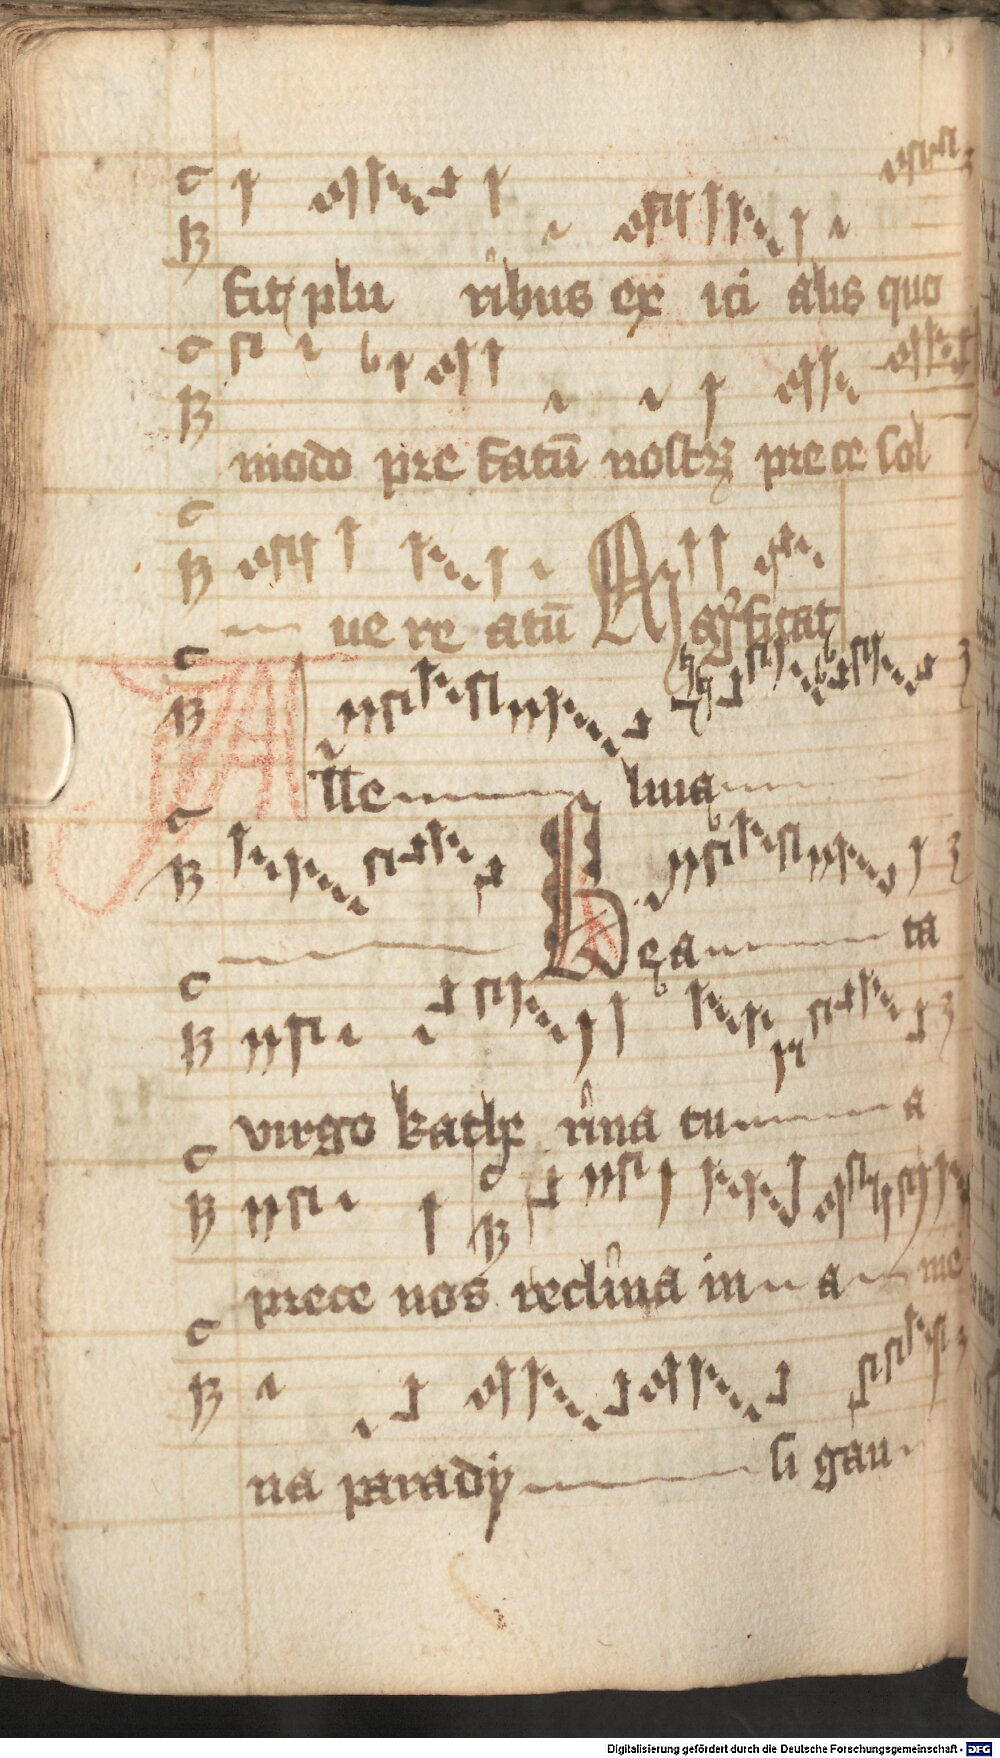 plu ribus ex ici alis quo
modo pre Eatū nostrꝫ prece sol
ue re atū
lle luia
Bea ta
virgo kathe rina tu a
prece nos reclina in a me
na parady si gau
Digitalisierung gefördert durch die Deutsche Forschungsgemeinschaft - DFG